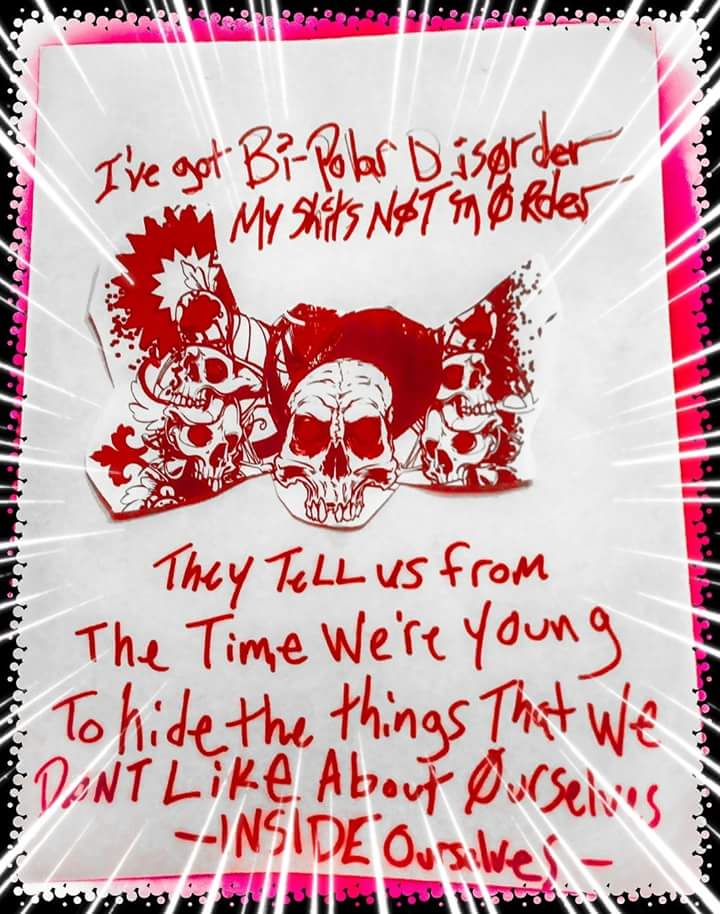 I've got Bi-Polar Disørder
My Shit's NøT in ØRder
They TeLL us from
The Time We're Young
To hide the things That We
DoNT Like About Øurselves
—INSIDE Ourselves—